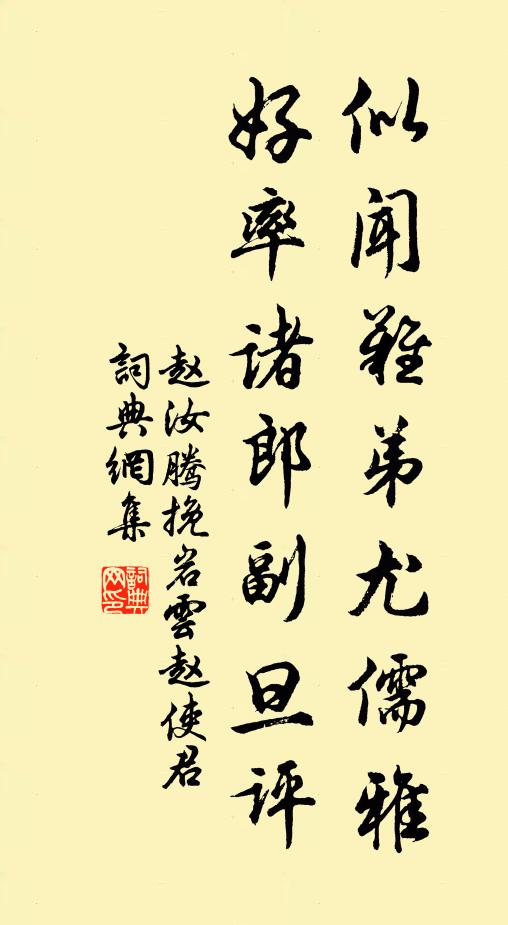 似闻难弟尤儒雅
好率诸郎副旦评
赵汝腾挽岩雲赵使君
詞典網集
詞典網印